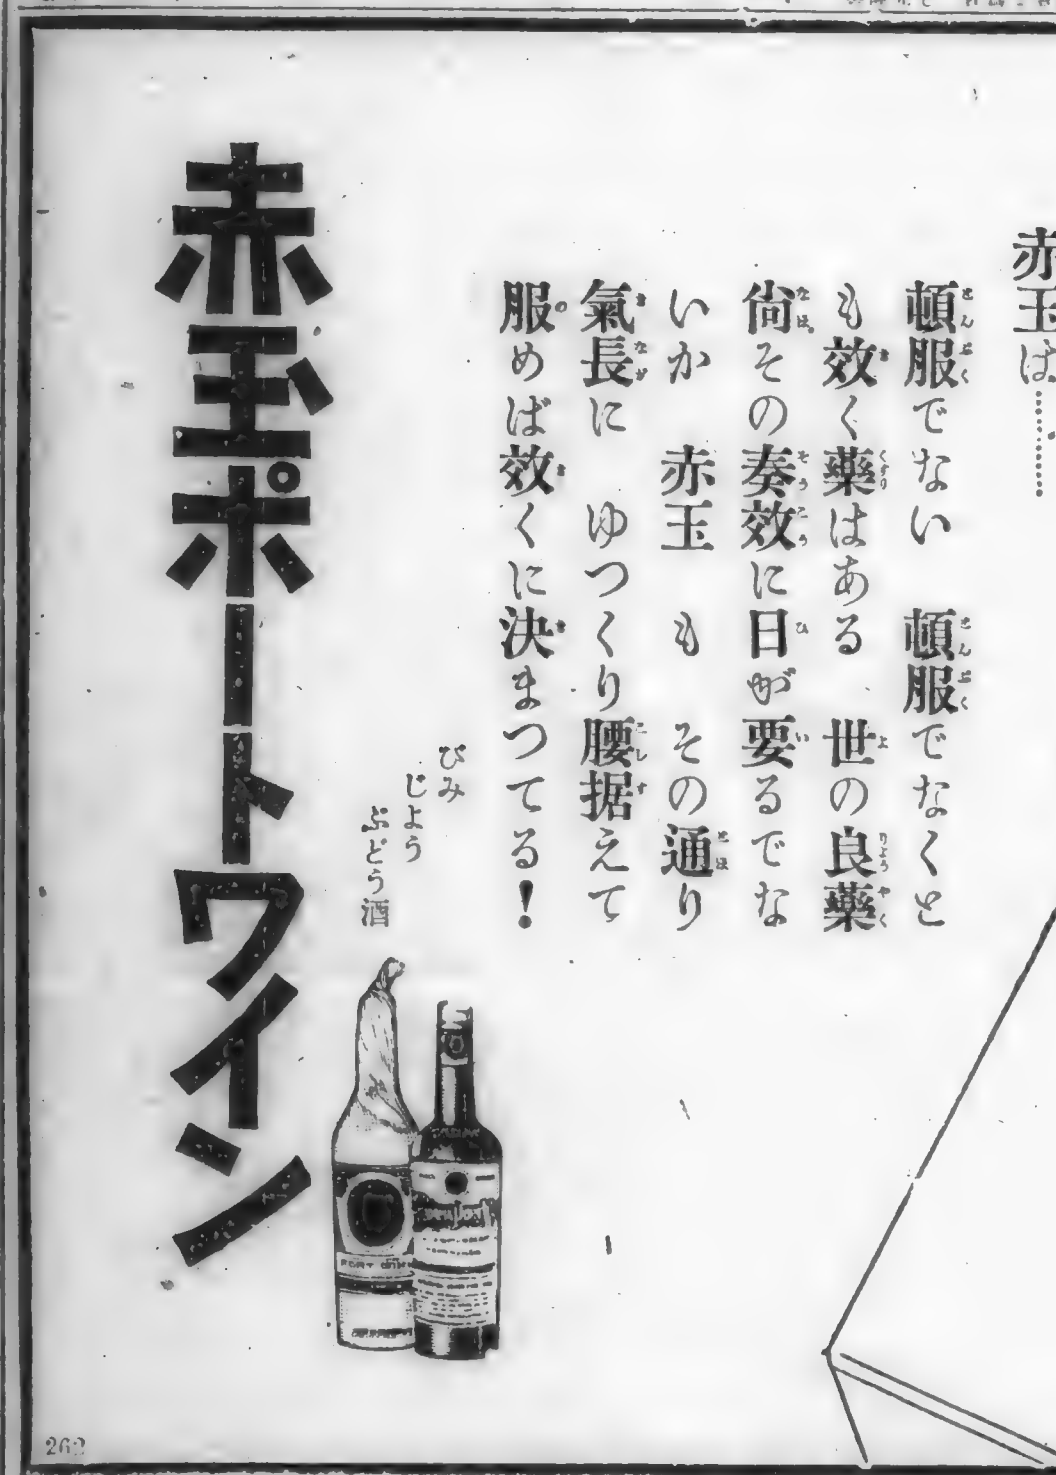 赤玉は…………
頓服でない　頓服でなくと
も效く藥はある　世の良藥
尙その奏效に日が要るでな
いか　赤玉　も　その通り
氣長に　ゆつくり腰据えて
服めば效くに決まつてる！
びみ
じよう
ぶどう酒
赤玉ポートワイン
262